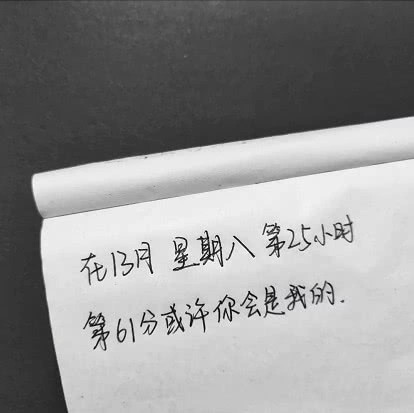 在13月 星期八 第25小时
第61分或许你会是我的.